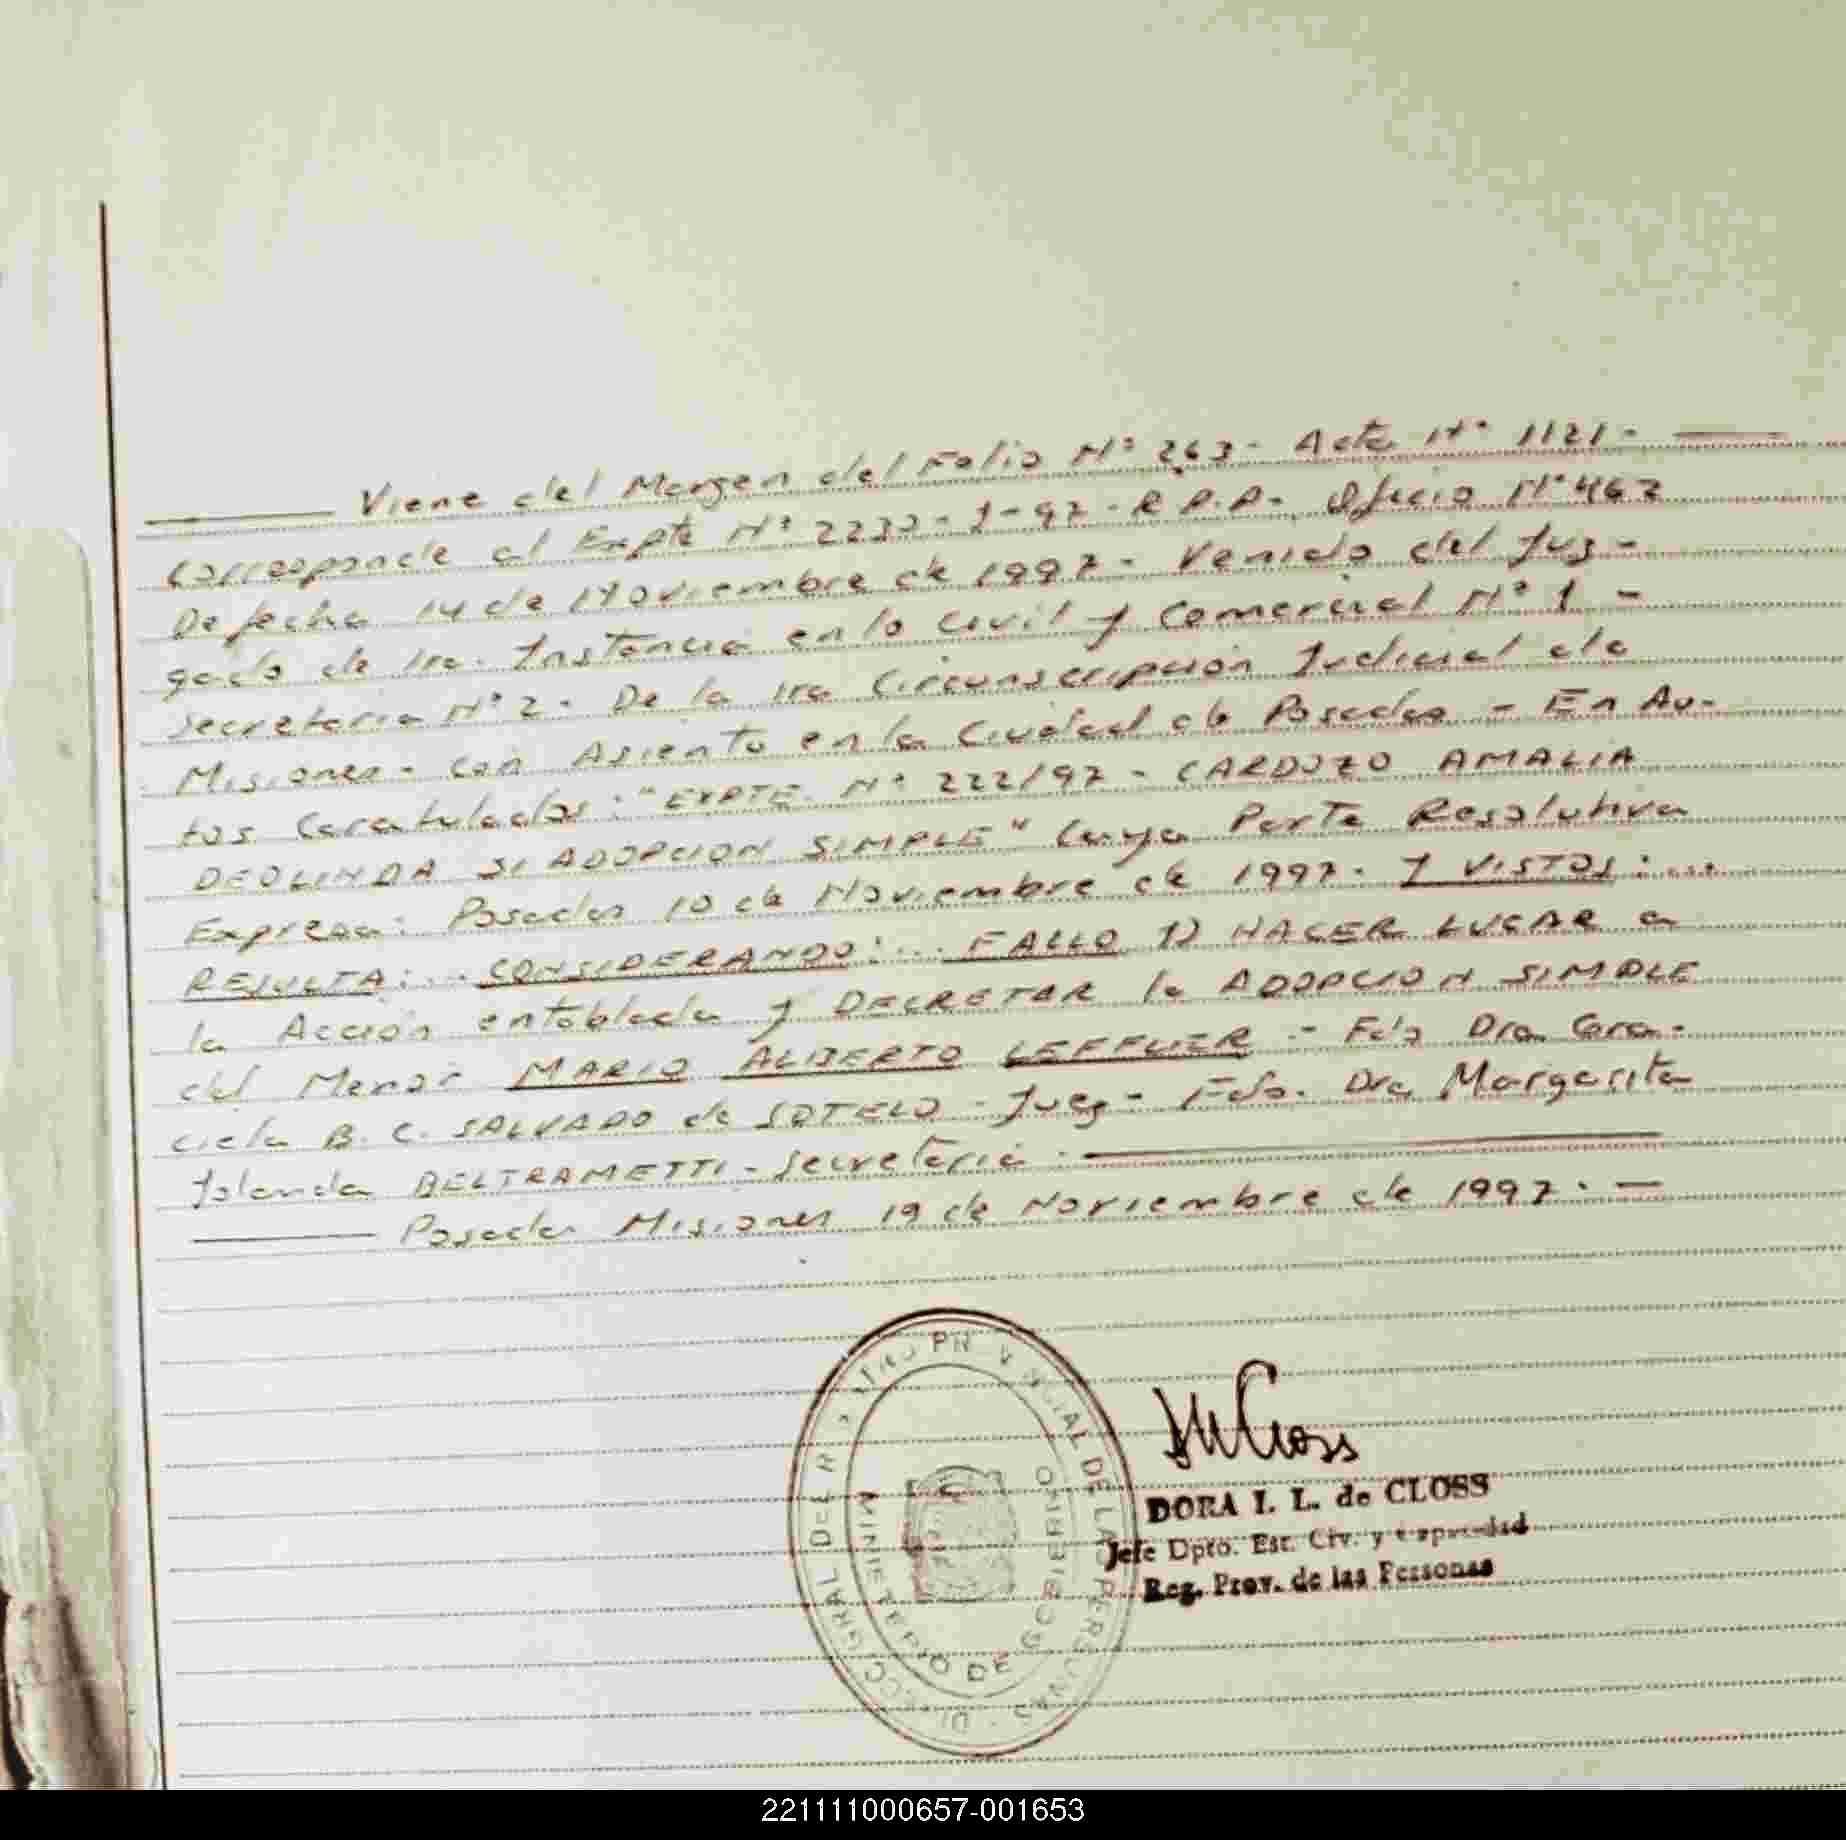 Viene del Margen del Folio N° 263 - Acta N° 1121 -
Corresponde al Expte N° 2232 - J - 97 - R.P.P - Oficio N° 467
De fecha 14 de Noviembre de 1997 - Venido del Juz-
gado de 1ra. Instancia en lo Civil y Comercial N° 1 -
Secretaria N° 2 - De la 1ra Circunscripción Judicial de
Misiones - Con Asiento en la Ciudad de Posadas - En Au-
tos Caratulados: "EXPTE. N° 222/97 - CARDOZO AMALIA
DEOLINDA S/ ADOPCION SIMPLE" Cuya Parte Resolutiva
Expresa: Posadas 10 de Noviembre de 1997. Y VISTOS:...
RESULTA:... CONSIDERANDO:... FALLO 1) HACER LUGAR a
la Acción entablada y DECRETAR la ADOPCION SIMPLE
del Menor MARIO ALBERTO LEFFLER - Fdo Dra Gra-
ciela B. C. SALVADO de SOTELO - Juez - Fdo. Dra Margarita
Yolanda BELTRAMETTI - Secretaria -
Posadas Misiones 19 de Noviembre de 1997. -
MINISTERIO DE GOBIERNO
DORA I. L. de CLOSS
Jefe Dpto. Est. Civ. y Capacidad
Reg. Prov. de las Personas
221111000657-001653